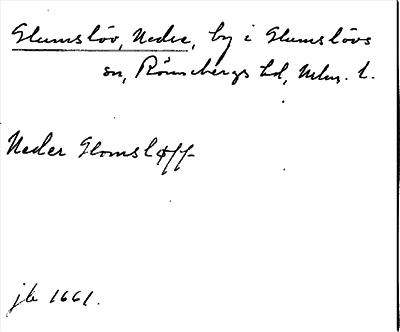 Glumslöv, Nedre, by i Glumslövs
sn, Rönnebergs hd, Mlm. l.
Neder Glomsløff
jb 1661.